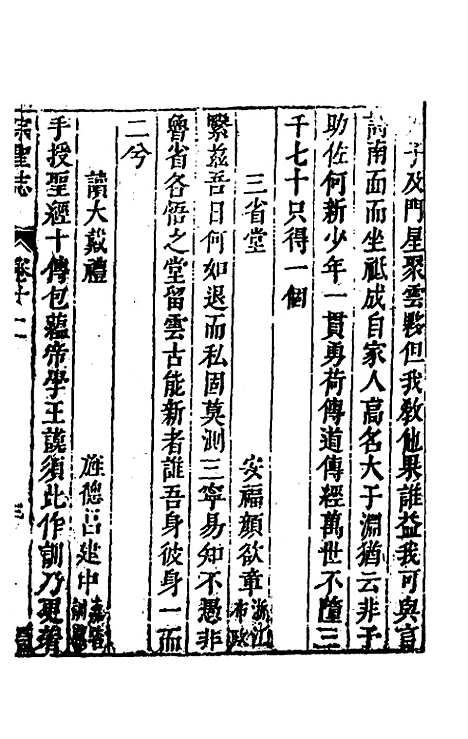 子及門星聚雲夥但我教他果誰益我可與言
詩南面而坐祗成自家人高名大于淵猶云非子
助佐何新少年一貫勇荷傳道傳經萬世不墮三
千七十只得一個
三省堂　安福顏欲章浙江布政
緊茲吾日何如退而私固莫測三寧易知不愚非
魯省各悟之堂留雲古能新者誰吾身彼身一而
二兮
讀大戴禮　旌德呂建中
手授聖經十傳包蘊帝學王謨須此作訓乃更
宗聖志　卷十二